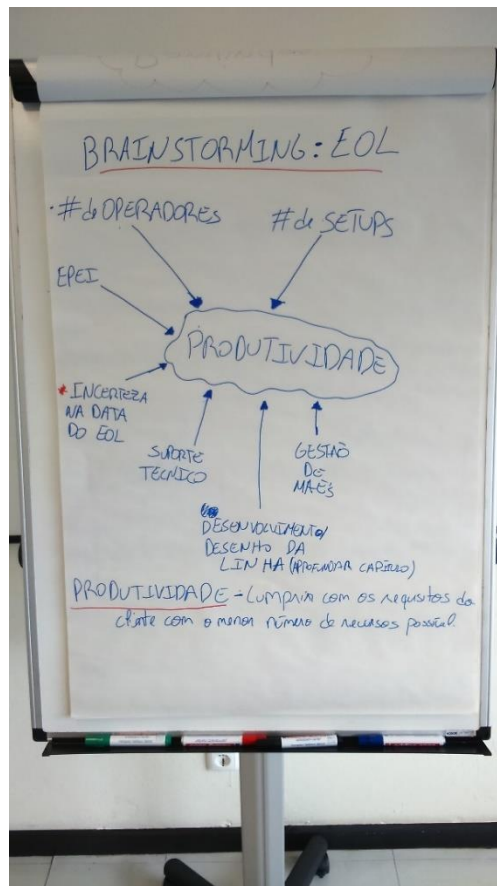 BRAINSTORMING: EOL
# de OPERADORES
# de SETUPS
EPEI
PRODUTIVIDADE
* INCERTEZA
NA DATA
DO EOL
SUPORTE
TÉCNICO
GESTÃO
DE
MAE'S
DESENVOLVIMENTO/
DESENHO DA
LINHA (APROFUNDAR CAPÍTULO)
PRODUTIVIDADE - Cumprir com os requisitos do
cliente com o menor número de recursos possível.